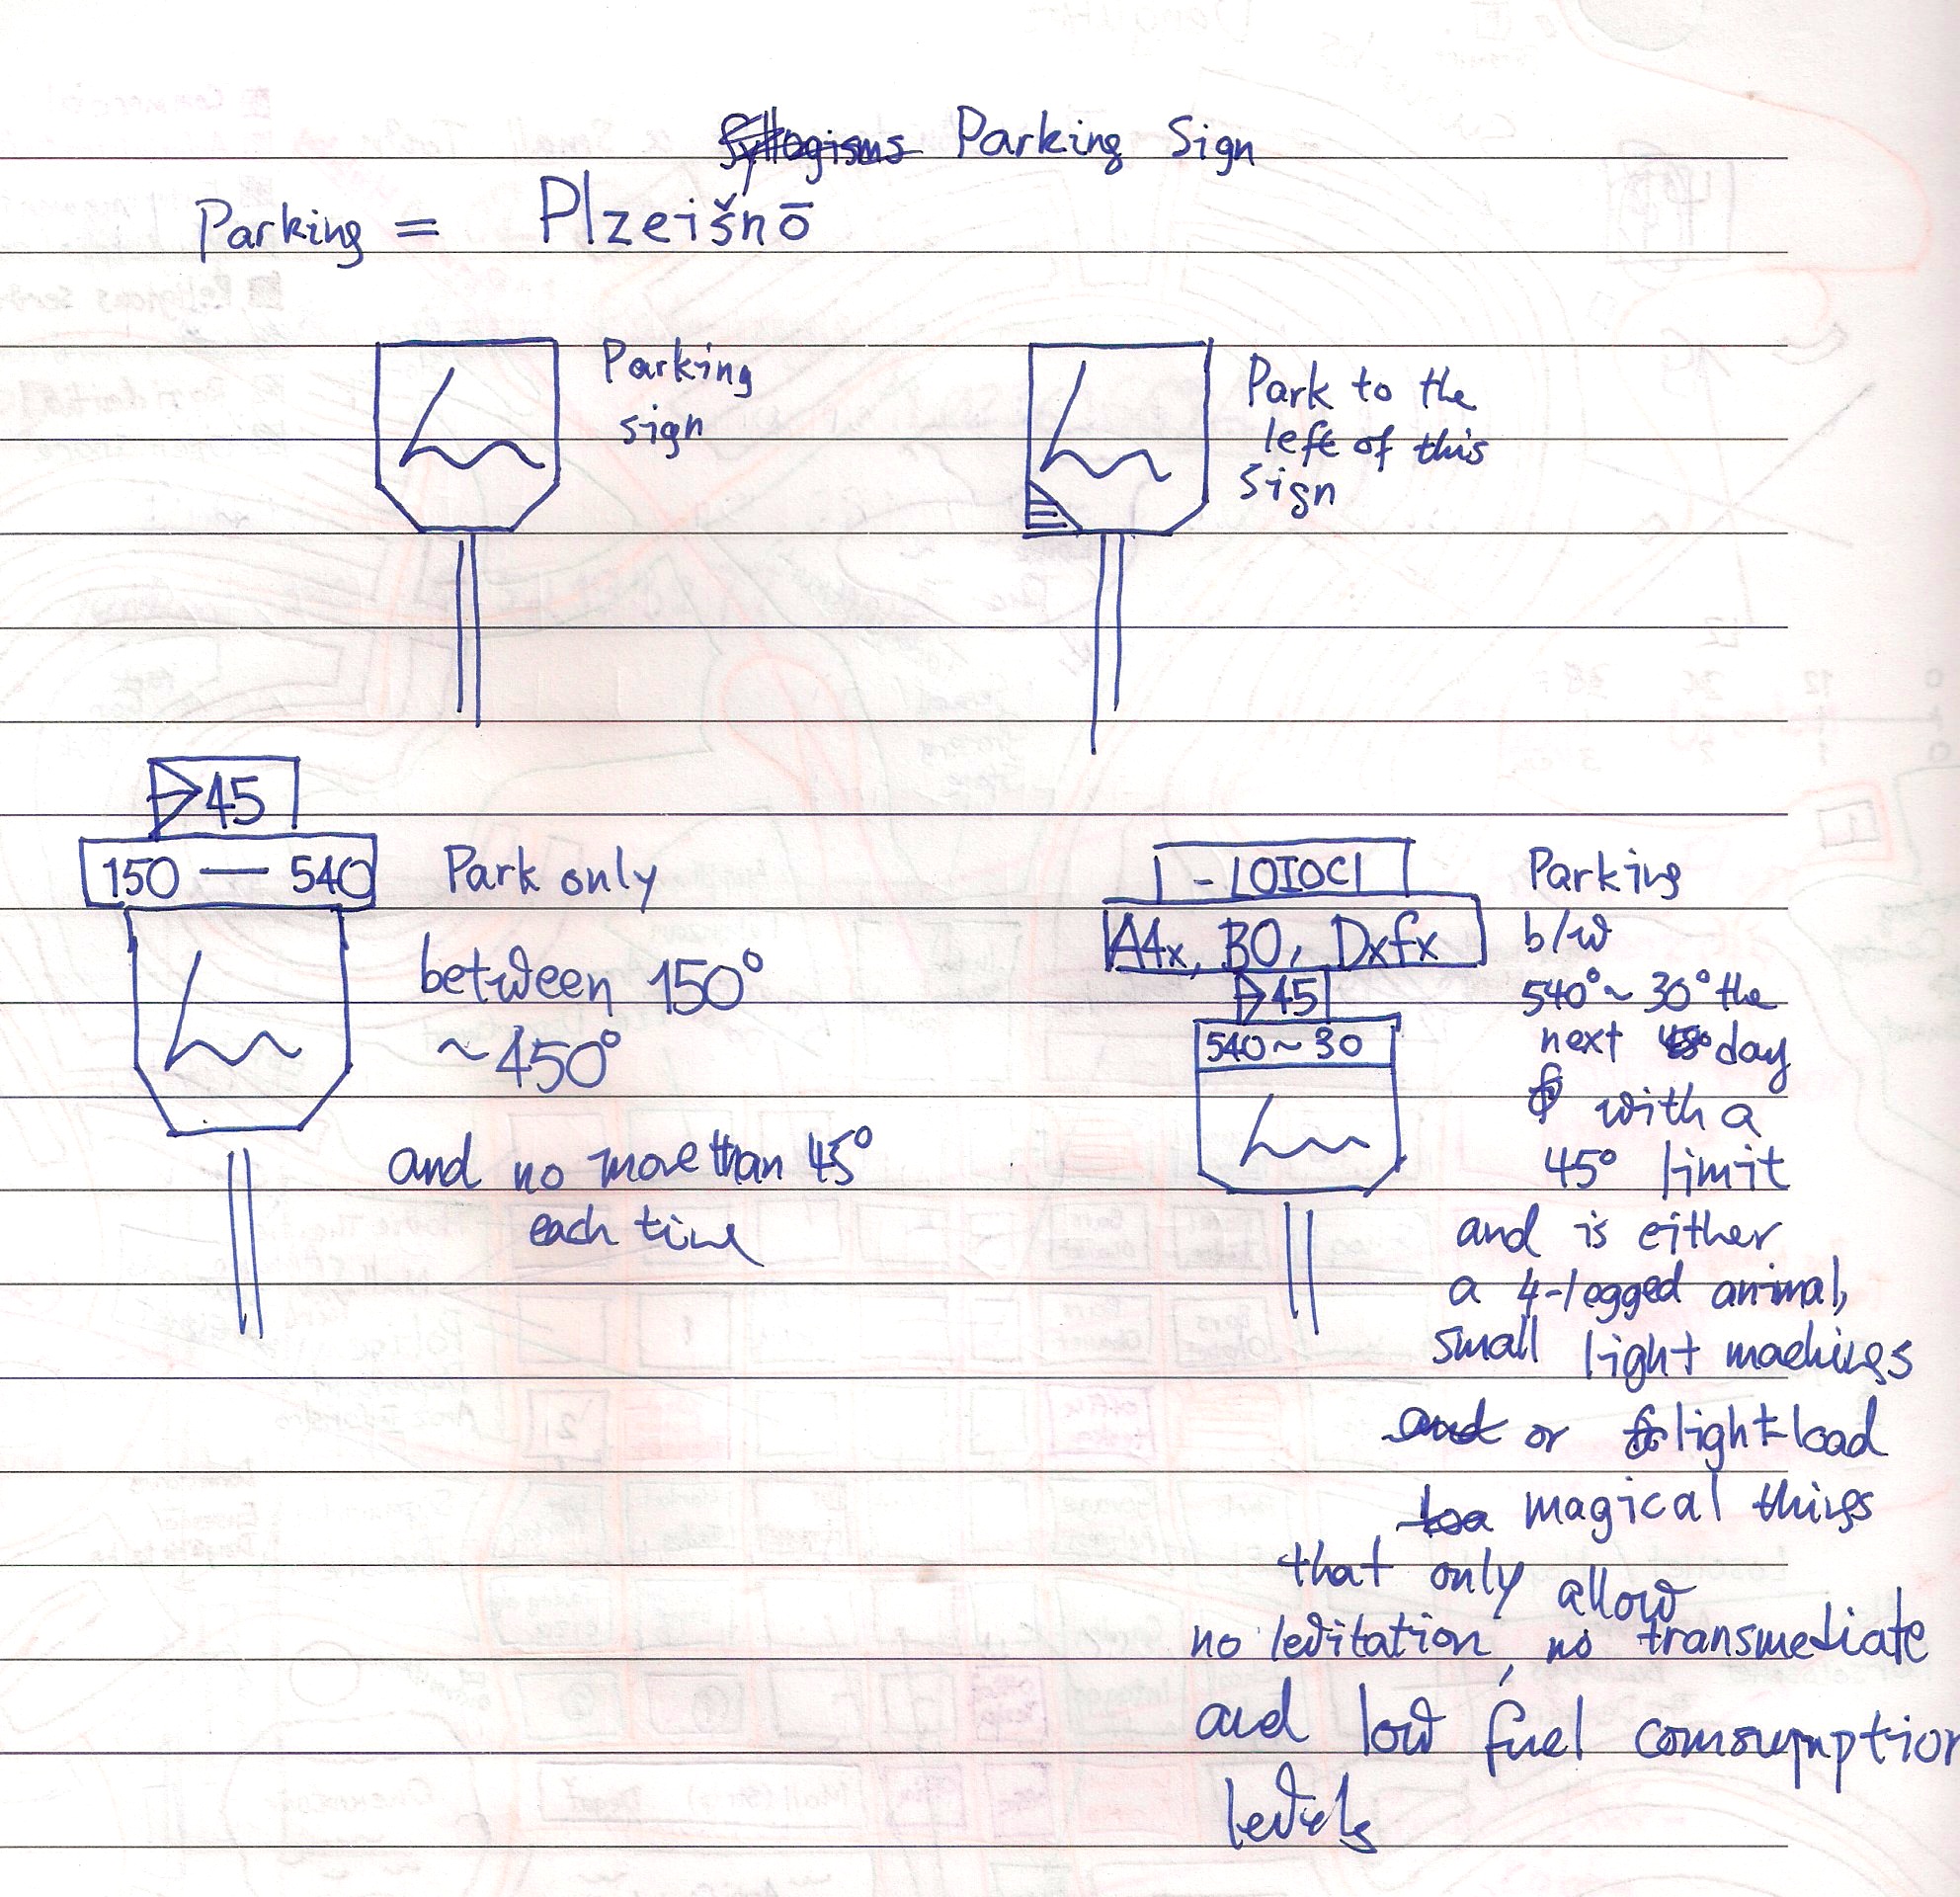 Syllogisms Parking Sign
Parking = Plzeišnō
Parking
sign
Park to the
left of this
sign
>45
150 — 540
Park only
between 150°
~450°
and no more than 45°
each time
A4x, B0, Dxfx
45
540~30
Parking
b/w
540°~30° the
next day
with a
45° limit
and is either
a 4-legged animal,
small light machines
and or light-load
magical things
that only allow
no levitation, no transmediate
and low fuel comsumption
levels